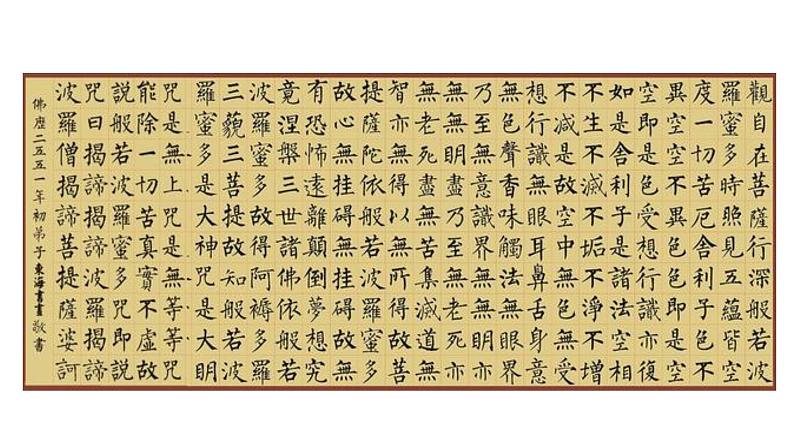 觀自在菩薩行深般若波
羅蜜多時照見五蘊皆空
度一切苦厄舍利子色不
異空空不異色色即是空
空即是色受想行識亦復
如是舍利子是諸法空相
不生不滅不垢不淨不增
不減是故空中無色無受
想行識無眼耳鼻舌身意
無色聲香味觸法無眼界
乃至無意識界無無明亦
無無明盡乃至無老死亦
無老死盡無苦集滅道無
智亦無得以無所得故菩
提薩陀依般若波羅蜜多
故心無挂礙無挂礙故無
有恐怖遠離顛倒夢想究
竟涅槃三世諸佛依般若
波羅蜜多故得阿褥多羅
三藐三菩提故知般若波
羅蜜多是大神咒是大明
咒是無上咒是無等等咒
能除一切苦真實不虛故
說般若波羅蜜多咒即說
咒曰揭諦揭諦波羅揭諦
波羅僧揭諦菩提薩婆訶
佛曆二五五一年初弟子東海書畫敬書